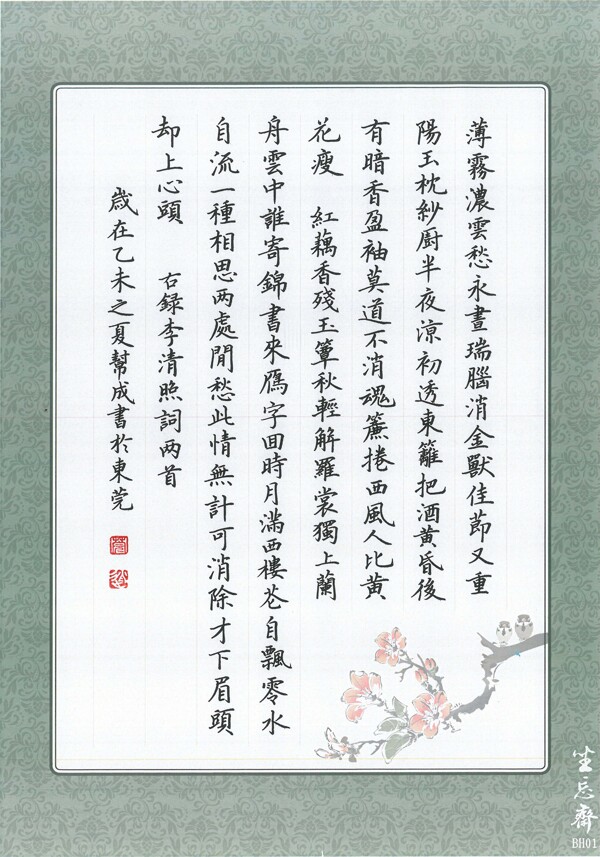 薄霧濃雲愁永晝瑞腦消金獸佳節又重
陽玉枕紗厨半夜涼初透東籬把酒黄昏後
有暗香盈袖莫道不消魂簾捲西風人比黄
花瘦　紅藕香殘玉簟秋輕解羅裳獨上蘭
舟雲中誰寄錦書來鴈字回時月滿西樓花自飄零水
自流一種相思两處閒愁此情無計可消除才下眉頭
却上心頭　右録李清照詞两首
歳在乙未之夏幫成書於東莞
坐忘齋
BH01